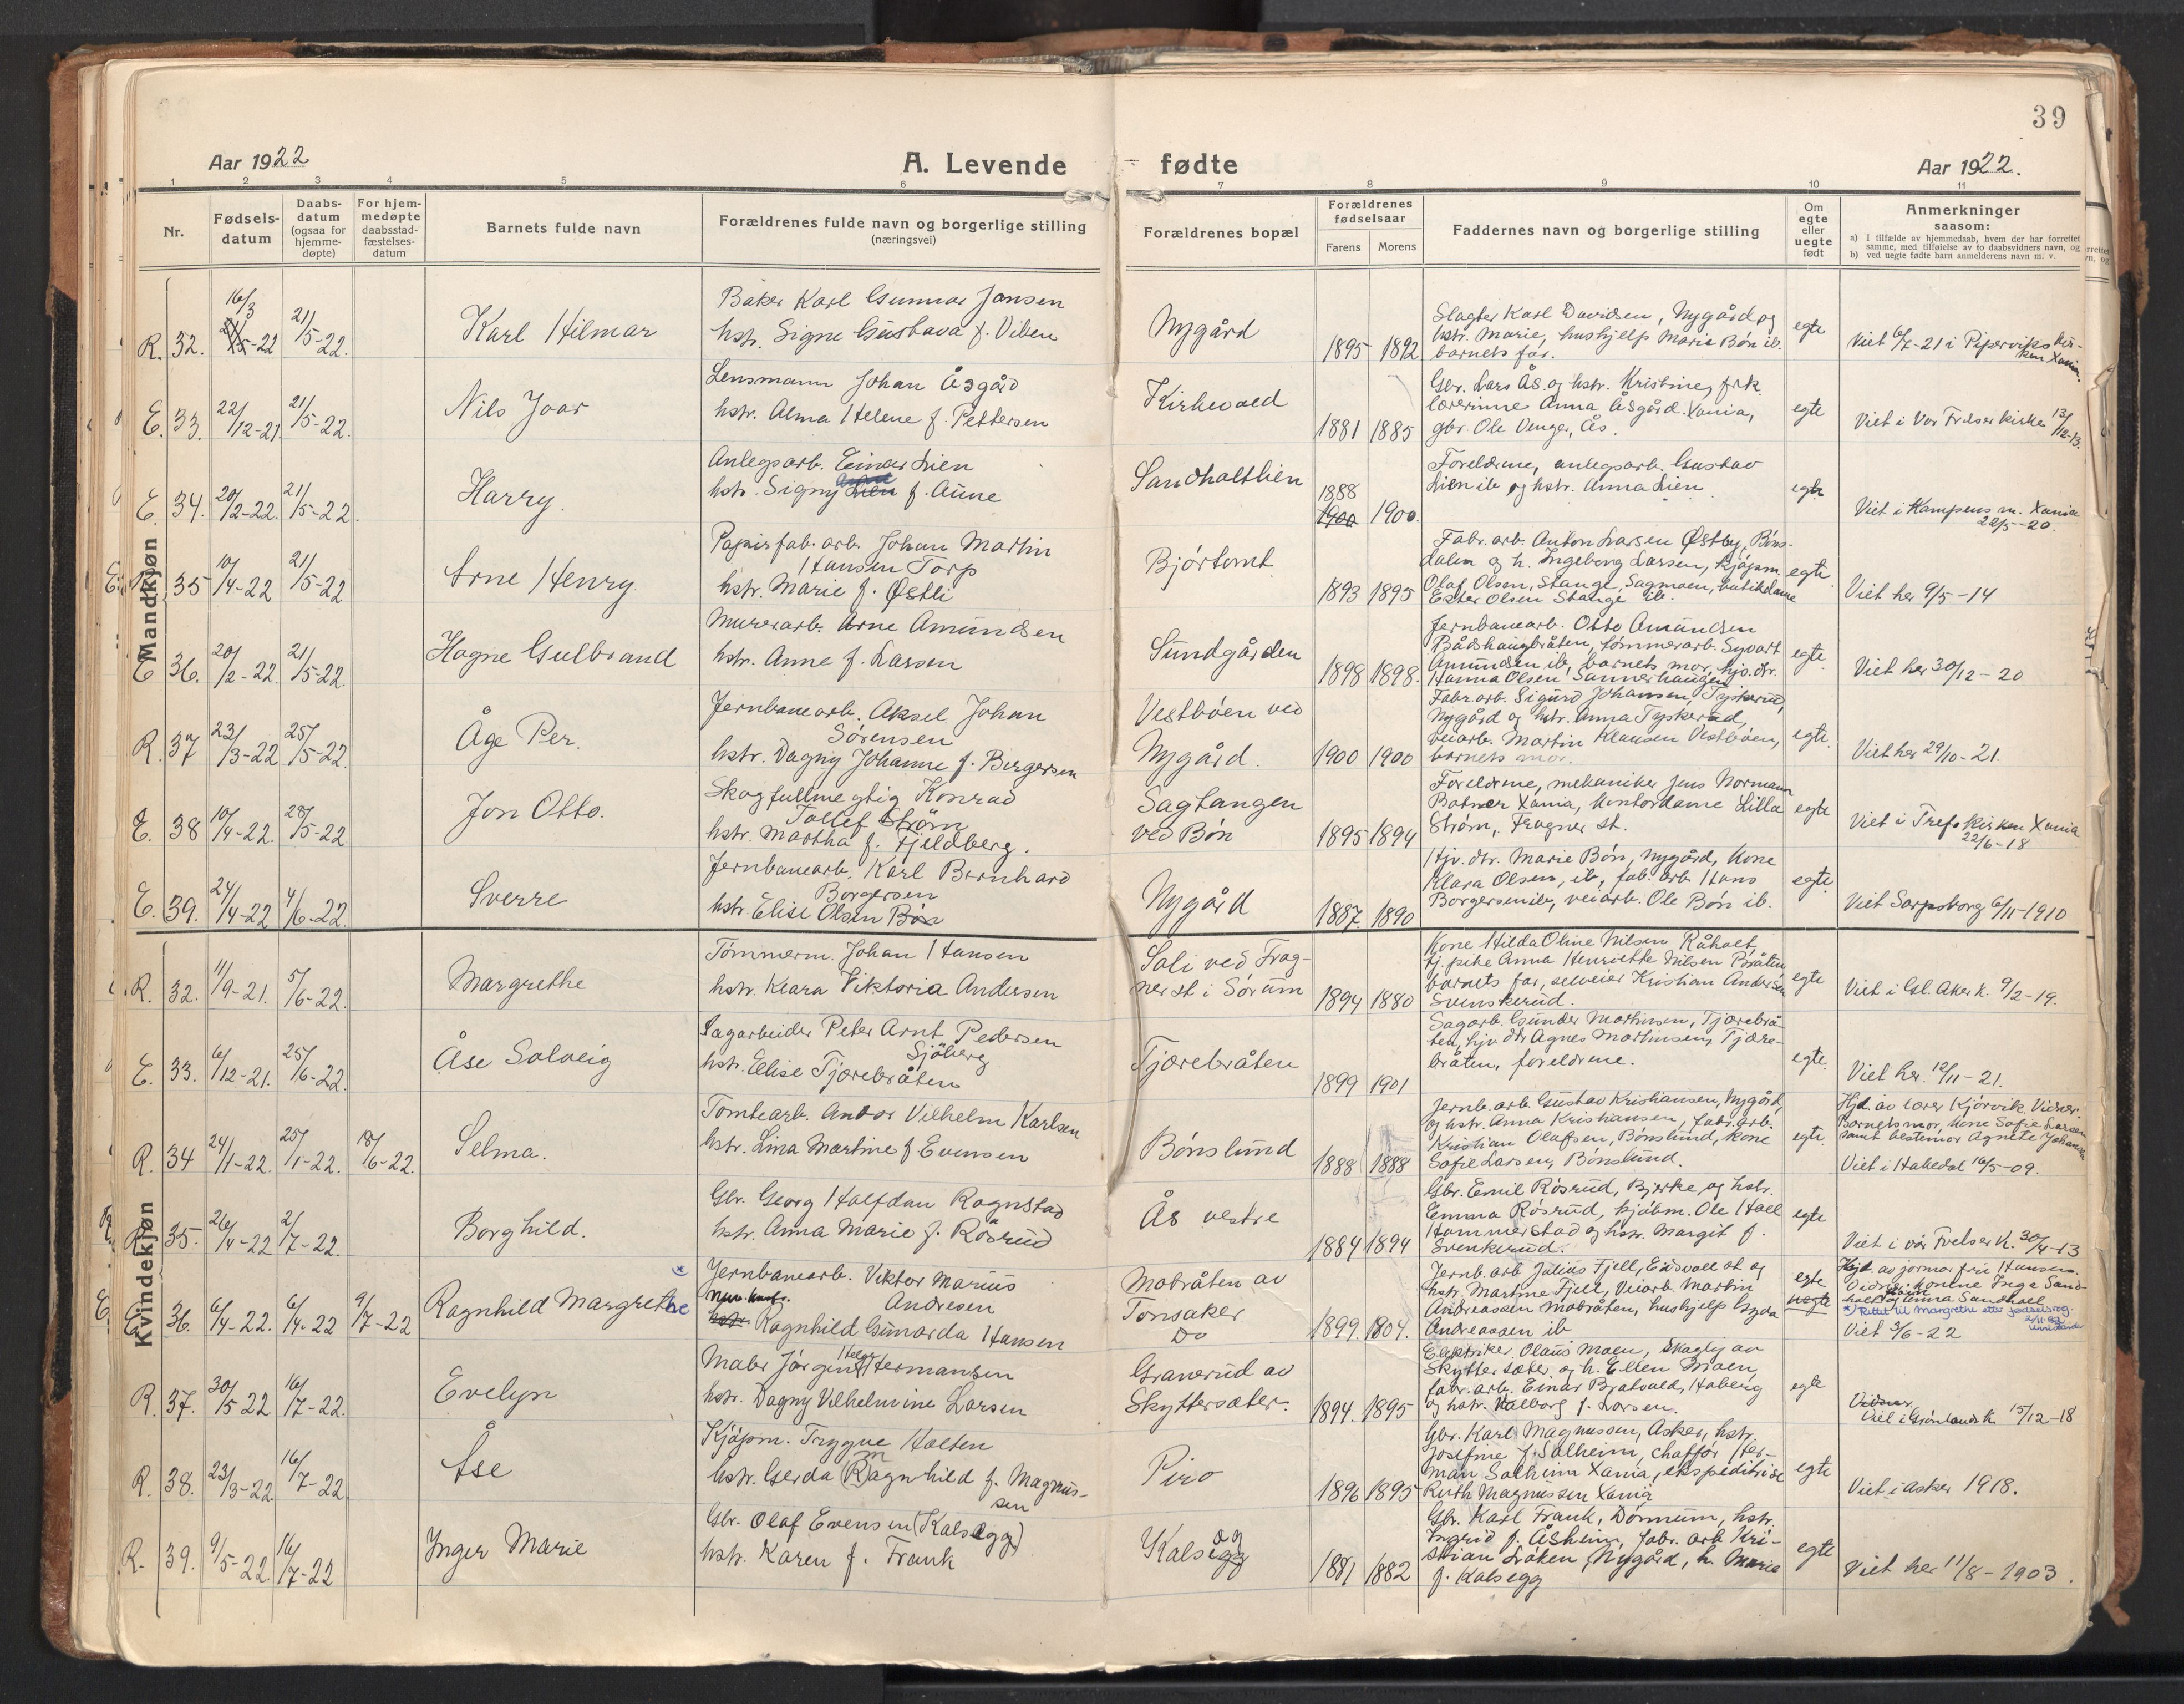 39
Aar 1922
A. Levende fødte
Aar 1922.
1 2 3 4 5 6 7 8 9 10 11
Nr.
Fødsels-
datum
Daabs-
datum
(ogsaa for
hjemme-
døpte)
For hjem-
medøpte
daabsstad-
fæstelses-
datum
Barnets fulde navn
Forældrenes fulde navn og borgerlige stilling
(næringsvei)
Forældrenes bopæl
Forældrenes
fødselsaar
Farens
Morens
Faddernes navn og borgerlige stilling
Om
egte
eller
uegte
født
Anmerkninger
saasom:
a) I tilfælde av hjemmedaab, hvem der har forrettet
samme, med tilføielse av to daabsvidners navn, og
b) ved uegte fødte barn anmelderens navn m. v.
Mandkjøn
R. 32.
16/3
-22
21/5-22.
Karl Hilmar
Baker Karl Gunnar Jansen
hstr. Signe Gustava f. Viben
Nygård
1895 1892
Slagter Karl Davidsen, Nygård og
hstr. Marie, hushjelp Marie Bøn ib.
barnets far.
egte
Viet 6/7-21 i Piperviks kir-
ken Xania.
E. 33.
22/12-21.
21/5-22.
Nils Joar
Lensmann Johan Åsgård
hstr. Alma Helene f. Pettersen
Kirkevold
1881 1885
Gbr. Lars Ås og hstr. Kristine, frk.
lærerinne Anna Åsgård Xania,
gbr. Ole Venger, Ås.
egte
Viet i Vor Frelser kirke 13/12-13.
E. 34.
20/2-22.
21/5-22.
Harry.
Anlegsarb. Einar Lien
hstr. Signy Lien f. Aune
Sandholtlien
1888
1900 1900.
Foreldrene, anlegsarb. Gustav
Lien ib og hstr. Anna Lien
egte
Viet i Kampens m. Xania
22/5-20.
E. 35
10/4-22
21/5-22
Arne Henry.
Papirfab. arb. Johan Martin
Hansen Torp
hstr. Marie f. Østli
Bjørtomt
1893 1895
Fabr. arb. Anton Larsen Østby, Bøns-
dalen og h. Ingeborg Larsen, kjøpm.
Olaf Olsen, Stange, Sagmoen, butikdame
Ester Olsen Stange ib.
egte
Viet her 9/5-14
E 36.
20/2-22.
21/5-22.
Hagne Gulbrand
Murerarb. Arne Amundsen
hstr. Anne f. Larsen
Sundgården
1898 1898.
Jernbanearb. Otto Amundsen
Bådshaugbråten, tømmerarb. Syvart
Amundsen ib, barnets mor, hjv. dtr.
Hanna Olsen Sannerhaugen
egte
Viet her 30/12-20
R. 37
23/3-22
25/5-22.
Åge Per.
Jernbanearb. Aksel Johan
Sørensen
hstr. Dagny Johanne f. Birgersen
Vestbøen ved
Nygård.
1900 1900
Fabr. arb. Sigurd Johansen, Tyskerud,
Nygård og hstr. Anna Tyskerud,
veiarb. Martin Klausen Vestbøen,
barnets mor.
egte.
Viet her 29/10-21.
E. 38
10/4-22.
28/5-22
Jon Otto.
Skogfullmegtig Konrad
Tollef Strøm
hstr. Martha f. Fjeldberg.
Sagtangen
ved Bøn
1895 1894
Foreldrene, mekaniker Jens Normann
Botner Xania, kontordame Lilla
Strøm, Frogner st.
egte
Viet i Trefo.kirken Xania
22/6-18
E. 39.
24/4-22
4/6-22.
Sverre
Jernbanearb. Karl Bernhard
Borgersen
hstr. Elise Olsen Bøn
Nygård
1887. 1890
Hjv. dtr. Marie Bøn, Nygård, kone
Klara Olsen, ib, fab. arb. Hans
Borgersen ib, veiarb. Ole Bøn ib.
egte.
Viet Sarpsborg 6/11-1910
Kvindekjøn
R. 32.
11/9-21.
5/6-22.
Margrethe
Tømmerm. Johan Hansen
hstr. Klara Viktoria Andersen
Soli ved Frog-
ner st i Sørum
1894 1880
Kone Hilda Oline Nilsen Råholt,
tj. pike Anna Henriette Nilsen
barnets far, selveier Kristian Andersen
Svenskerud.
egte
Viet i Gl. Aker k. 9/2-19.
E. 33.
6/12-21.
25/6-22.
Åse Solveig
Sagarbeider Peter Arnt Pedersen
Sjøberg
hstr. Elise Tjærebråten
Tjærebråten
1899 1901
Sagarb. Gunder Martinsen, Tjærebrå-
ten, hjv. dtr Agnes Martinsen, Tjære-
bråten, foreldrene.
egte.
Viet her. 12/11-21.
R. 34
24/1-22.
25/1-22.
18/6-22.
Selma.
Tomtearb. Andor Vilhelm Karlsen
hstr. Lina Martine f Evensen
Bønslund
1888 1888
Jernb. arb. Gustav Kristiansen, Nygård,
og hstr. Anna Kristiansen, fabr. arb.
Kristian Olafsen, Bønslund, kone
Sofie Larsen, Bønslund.
egte
Hjd. av lærer Kjørvik. Vidner:
Barnets mor, kone Sofie Larsen
samt bestemor Agnete Johansen
Viet i Hakedal 16/5-09.
R. 35.
26/4-22
2/7-22.
Borghild.
Gbr. Georg Halfdan Rognstad
hstr. Anna Marie f. Røsrud
Ås vestre
1884 1894
Gbr. Emil Røsrud, Bjerke og hstr.
Emma Røsrud, kjøbm. Ole Hoel
Hammerstad og hstr. Margit f.
Svenkerud.
egte
Viet i vår Frelser k. 30/4-13
E. 36.
6/4-22.
6/4-22
9/7-22
Ragnhild Margrethe
Jernbanearb. Viktor Marius
Andresen
hstr. Ragnhild Gunarda Hansen
Mobråten av
Tonsaker
Do
1899. 1804.
Jernb. arb Julius Fjell, Eidsvoll st og
hstr. Martine Fjell, Veiarb. Martin
Andreassen Mobråten, hushjelp Gyda
Andreassen ib
egte
uegte
Hjd. av jormor frie Hansen.
Vidner: konene Inga Sand-
holt og Anna Sandholt
*) Rettet til Margrethe etter fødselsreg.
Viet 3/6-22
R. 37.
30/5 22
16/7-22.
Evelyn
Maler Jørgen Helge Hermansen
hstr. Dagny Vilhelmine Larsen
Granerud av
Skyttersæter.
1894. 1895
Elektriker Olaus Moen, Skoglig av
Skyttersæter og h. Ellen Moen,
fabr. arb. Einar Bjatvald, Haberg
og hstr. Valborg f. Larsen.
egte
Vidner
Viet i Grønlands k. 15/12-18
R. 38.
23/3-22
16/7-22
Åse
Kjøpm. Trygve Holten
hstr. Gerda Ragnhild f. Magnus-
sen
Piro
1896 1895
Gbr. Karl Magnussen, Asker, hstr.
Josefine f. Solheim, chaffør Her-
man Solheim Xania, ekspeditrise
Ruth Magnussen Xania
egte
Viet i Asker 1918.
R. 39.
9/5-22
16/7-22
Inger Marie
Gbr. Olaf Evensen (Kalsegg)
hstr. Karen f. Frank
Kalsegg
1881 1882
Gbr. Karl Frank, Dønnum, hstr.
Ingrid f. Åsheim, fabr. arb Kri-
stian Låken, Nygård, h. Marie
f. Kalsegg
egte
Viet her 11/8-1903.